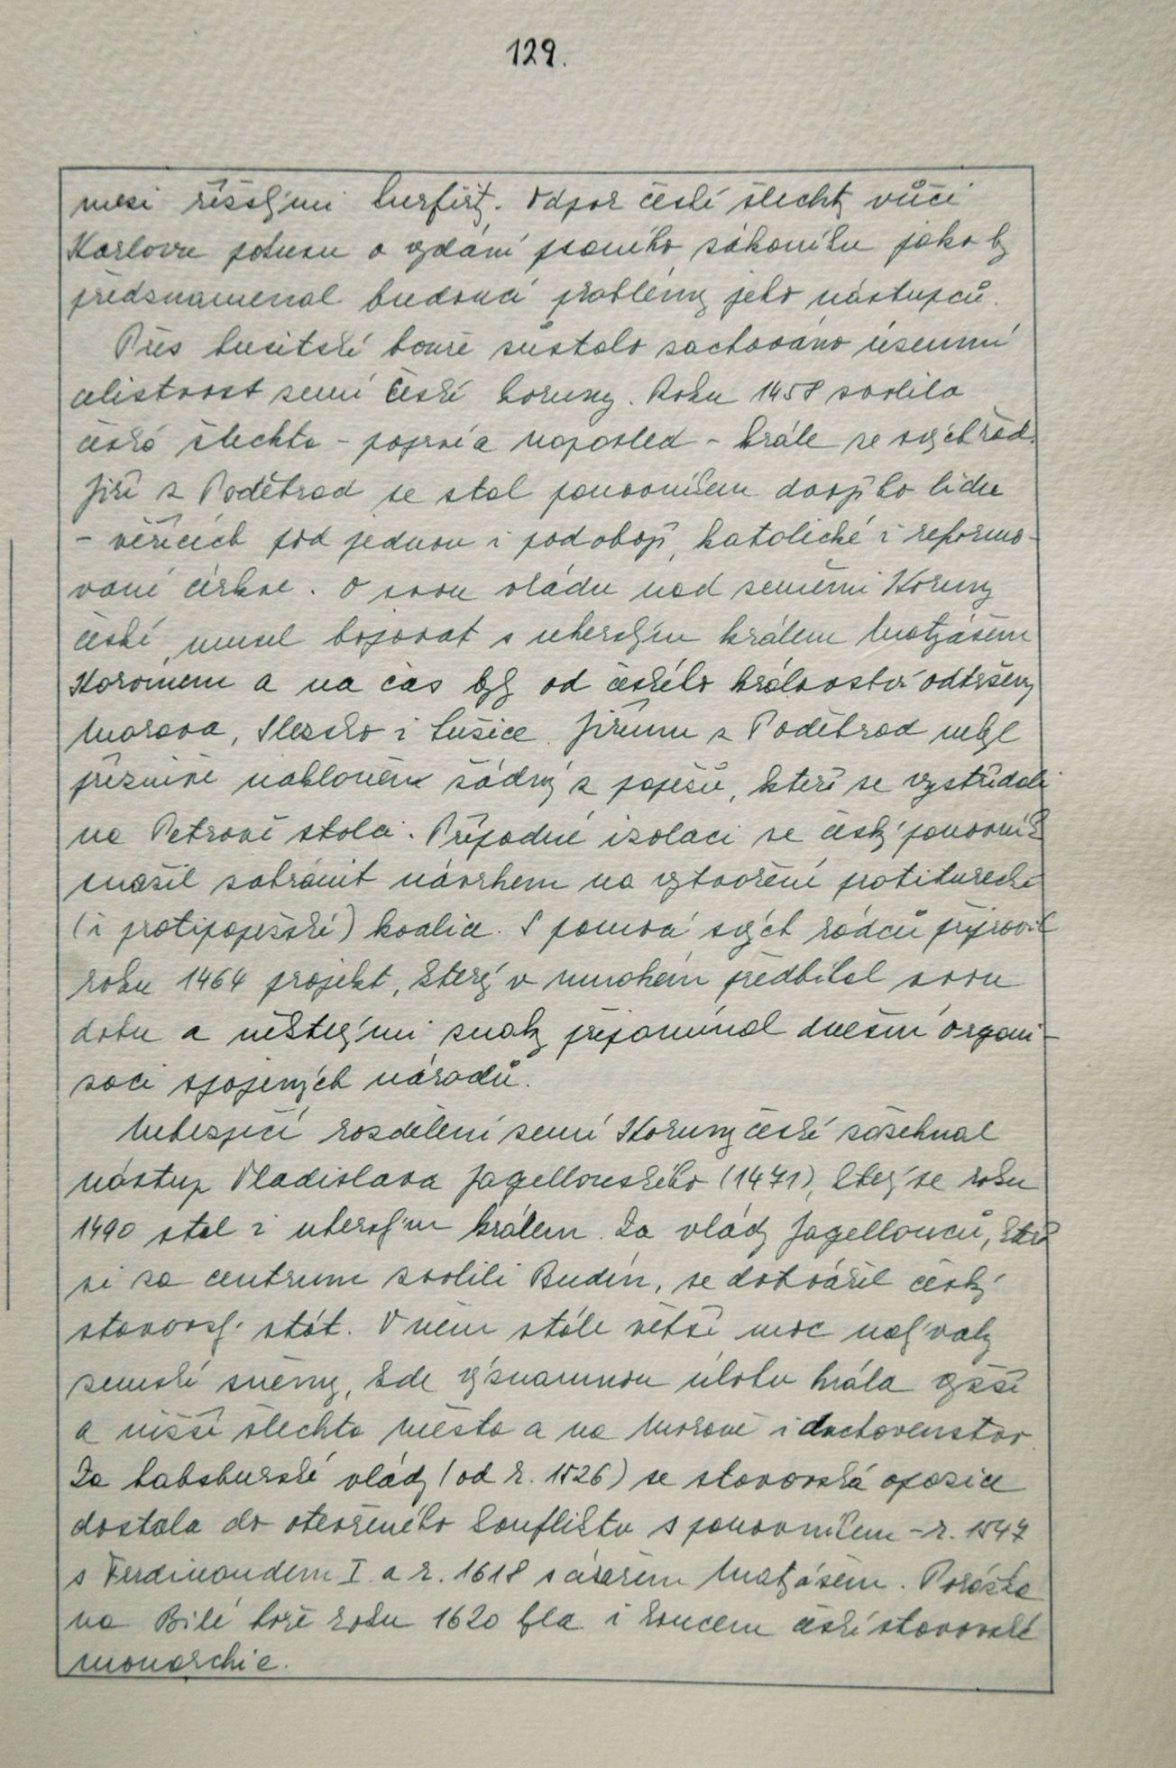 129.
mezi říšskými kurfiřty. Odpor české šlechty vůči
Karlovu pokusu o vydání psaného zákoníku jako by
předznamenal budoucí problémy jeho nástupců.
Přes husitské bouře zůstalo zachováno územní
celistvost zemí České koruny. Roku 1458 zvolila
česká šlechta - poprvé a naposled - krále ze svých řad.
Jiří z Poděbrad se stal panovníkem dvojího lidu
- věřících pod jednou i podobojí, katolické i reformo-
vané církve. O svou vládu nad zeměmi Koruny
české, musel bojovat s uherským králem Matyášem
Korvínem a na čas byly od českého království odtrženy
Morava, Slezsko i Lužice. Jiřímu z Poděbrad nebyl
příznivě nakloněn žádný z papežů, kteří se vystřídali
na Petrově stolci. Případné izolaci se český panovník
snažil zabránit návrhem na vytvoření protiturecké
(i protipapežské) koalice. S pomocí svých rádců připravil
roku 1464 projekt, který v mnohém předběhl svou
dobu a některými znaky připomínal dnešní Organi-
zaci spojených národů.
Nebezpečí rozdělení zemí Koruny české zažehnal
nástup Vladislava Jagellonského (1471), který se roku
1490 stal i uherským králem. Za vlády Jagellonců, kteří
si za centrum zvolili Budín, se dotvářel český
stavovský stát. V něm stále větší moc nabývaly
zemské sněmy, kde významnou úlohu hrála vyšší
a nižší šlechta města a na Moravě i duchovenstvo.
Za habsburské vlády (od r. 1526) se stavovská opozice
dostala do otevřeného konfliktu s panovníkem - r. 1547
s Ferdinandem I. a r. 1618 s císařem Matyášem. Porážka
na Bílé hoře roku 1620 byla i koncem české stavovské
monarchie.